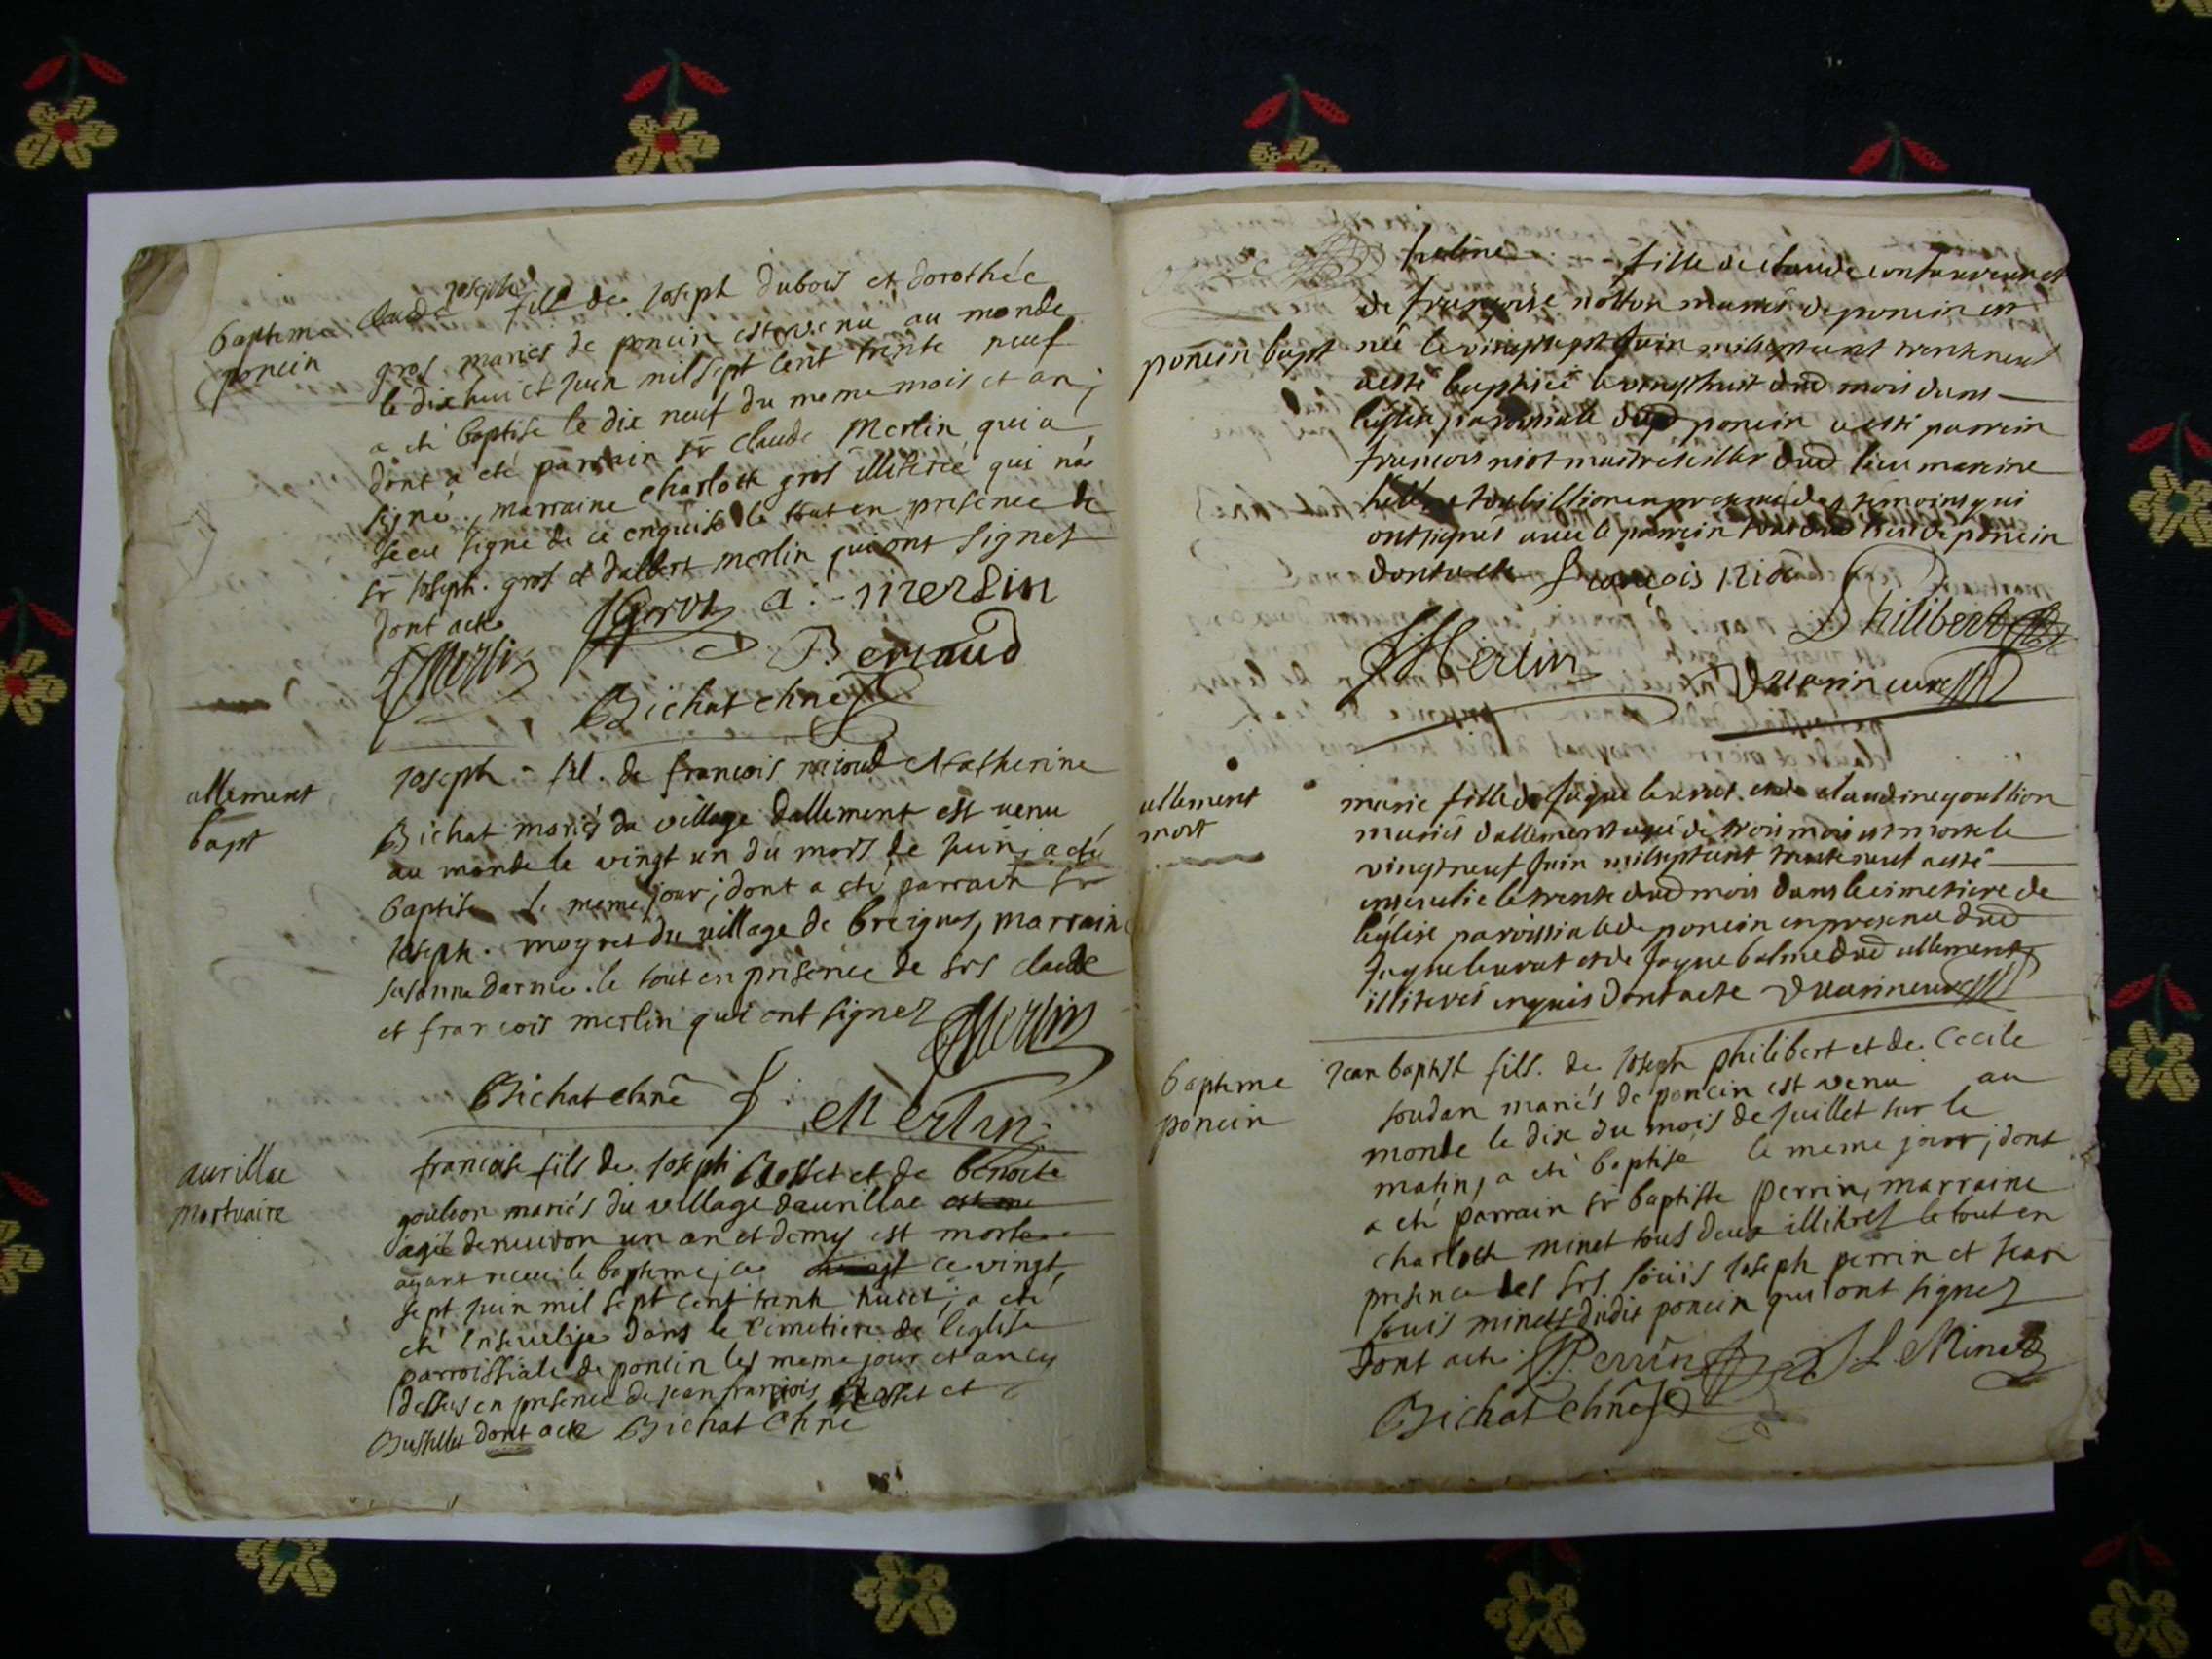 Bapteme
poncin
Joseph
Claude fils de Joseph dubois et dorothée
gros mariés de poncin est venu au monde
le dix huict juin mil sept cent trente neuf
a eté baptise le dix neuf du meme mois et an;
dont a eté parrain sr claude Merlin qui a
signé, marraine charlotte gros illiterée qui na
sceu signé de ce enquise le tout en presence de
sr Joseph. gros et dalbert merlin qui ont signet
dont acte JGros a: merlin
Merlin Bernaud
Bichat
allement
bapt
Joseph - fil. de francois et Catherine
Bichat mariés du village dallement est venu
au monde le vingt un du mois de juin; a eté
baptise le meme jour; dont a eté parrain sr
Joseph. moyret du village de breignes, marraine
susanne darme. le tout en presence de srs claude
et francois merlin qui ont signez Merlin
Bichat f: Merlin
aurillac
mortuaire
francoise fils de Joseph et de benoite
goulion mariés du village daurillac
agé denuiron un an et demy est morte
ayant receu le bapteme, ce ce vingt
sept juin mil sept cent trente ; a eté
eté ensevelije dans le cimetiere de leglise
parroissiale de poncin les meme jour et an cy
dessus en presence de jean francois et
dont acte Bichat
poncin bapt
fille de claude
de francoise mariés de poncin est
née le vingtsept Juin millesept cent trente neuf
a esté baptisée le vingthuit dud mois dans
leglise parroissiale dud poncin a esté parrein
francois niot dud lieu mareine
en presence des témoins qui
ont signés avec le parrein tous dud lieu de poncin
dont acte francois niot
Philibert
Merlin
allement
mort
marie fille de Jaque et de claudine goullion
mariés dallement agée de trois mois est morte le
vingtneuf Juin millesept cent trente neuf a esté
ensevelie le trente dud mois dans le cimetiere de
léglise paroissiale de poncin en presence dud
Jaque et de Jaque balme dud allement
illiterés enquis dont acte
bapteme
poncin
Jean baptist fils. de Joseph philibert et de Cecile
soudan mariés de poncin est venu au
monde le dix du mois de Juillet sur le
matin, a eté baptisé le meme jour; dont
a eté parrain sr baptiste perrin, marraine
charlotte minet tous deux illitres le tout en
presence des srs loüis Joseph perrin et jean
louis minet dudit poncin qui ont signez
dont acte. Perrin J L Minet
Bichat